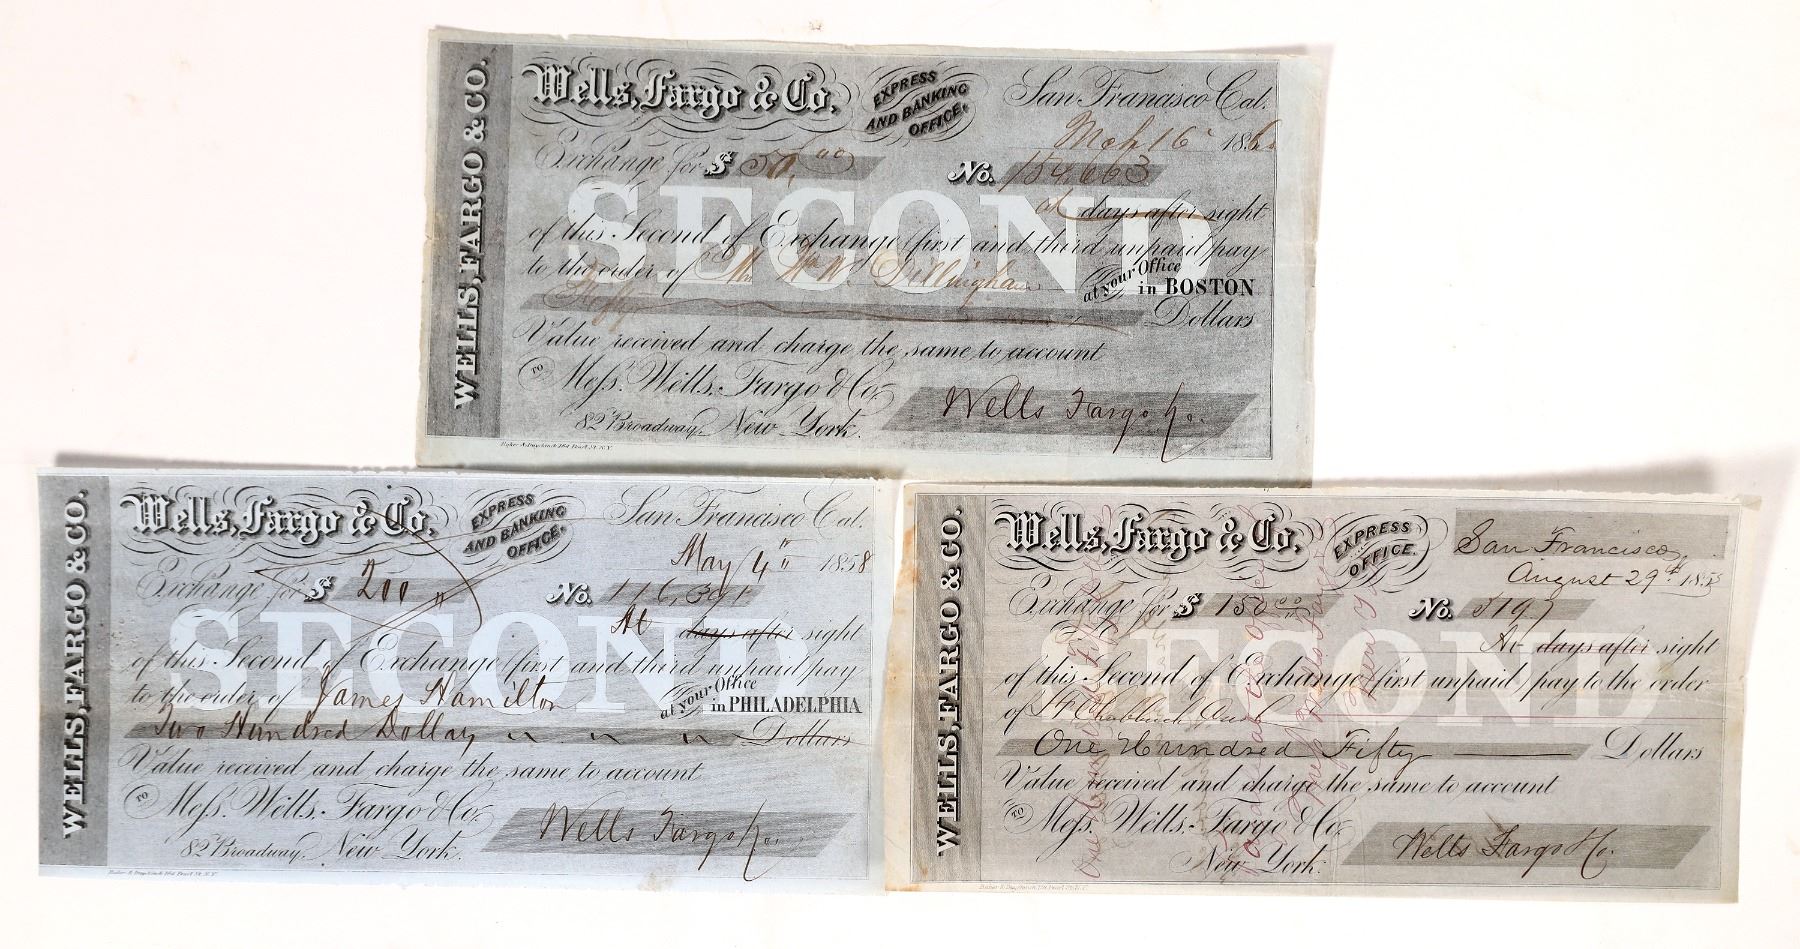 WELLS, FARGO & CO.
Wells, Fargo & Co.
EXPRESS
AND BANKING
OFFICE.
San Francisco Cal.
16 186
Exchange for $ 50,00 No. 154,663
SECOND
at days after sight
of this Second of Exchange (first and third unpaid) pay
to the order of Dillingham
at your Office
in BOSTON
Fifty Dollars
Value received and charge the same to account
TO Mess. Wells, Fargo & Co.
82 Broadway, New York.
Wells Fargo & Co.
WELLS, FARGO & CO.
Wells, Fargo & Co.
EXPRESS
AND BANKING
OFFICE.
San Francisco Cal.
May 4th 1858
Exchange for $ 200 " No. 116,391
SECOND
At days after sight
of this Second of Exchange (first and third unpaid) pay
to the order of James Hamilton
at your Office
in PHILADELPHIA
Two Hundred Dollars " " " Dollars
Value received and charge the same to account
TO Mess. Wells, Fargo & Co.
82 Broadway, New York.
Wells Fargo & Co.
WELLS, FARGO & CO.
Wells, Fargo & Co.
EXPRESS
OFFICE.
San Francisco
August 29th 185
Exchange for $ 150 00 No. 5197
SECOND
At days after sight
of this Second of Exchange (first unpaid) pay to the order
of
One Hundred Fifty Dollars
Value received and charge the same to account
TO Mess. Wells, Fargo & Co.
New York.
Wells Fargo & Co.